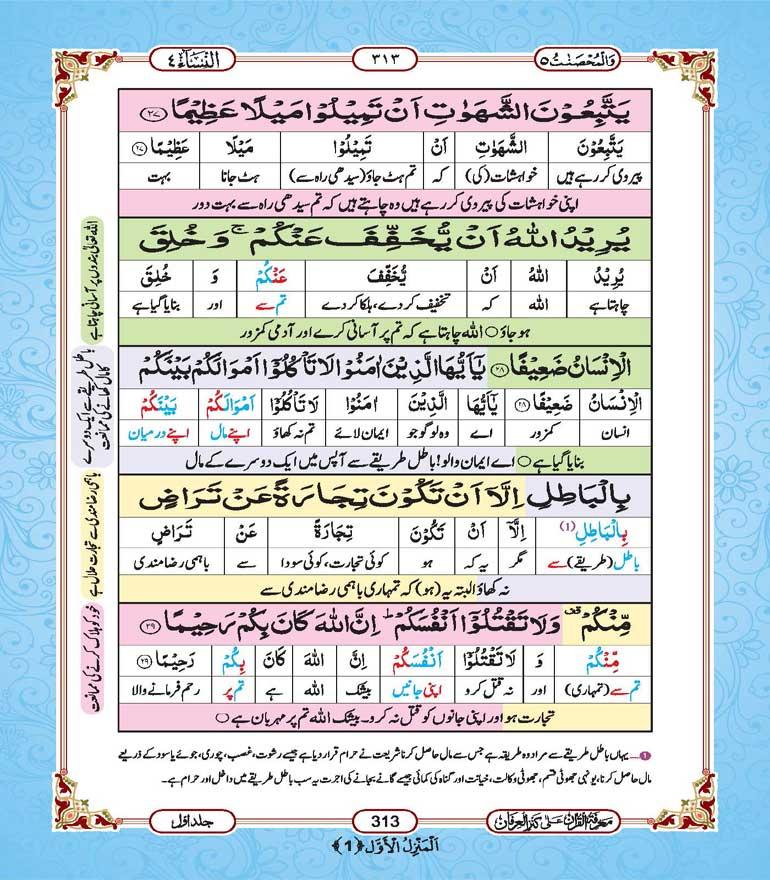 وَالْمُحْصَنٰتُ ۵
۳۱۳
اَلنِّسَآء ۴
يَتَّبِعُوْنَ الشَّهَوٰتِ اَنْ تَمِيْلُوْا مَيْلًا عَظِيْمًا ﴿۲۷﴾
يَتَّبِعُوْنَ الشَّهَوٰتِ اَنْ تَمِيْلُوْا مَيْلًا عَظِيْمًا ﴿۲۷﴾
پیروی کر رہے ہیں خواہشات (کی) کہ تم ہٹ جاؤ (سیدھی راہ سے) ہٹ جانا بہت
اپنی خواہشات کی پیروی کر رہے ہیں وہ چاہتے ہیں کہ تم سیدھی راہ سے بہت دور
يُرِيْدُ اللّٰهُ اَنْ يُّخَفِّفَ عَنْكُمْ ۚ وَ خُلِقَ
يُرِيْدُ اللّٰهُ اَنْ يُّخَفِّفَ عَنْكُمْ وَ خُلِقَ
چاہتا ہے اللہ کہ تخفیف کر دے، ہلکا کر دے تم سے اور بنایا گیا ہے
ہو جاؤ ○ اللہ چاہتا ہے کہ تم پر آسانی کرے اور آدمی کمزور
اللہ تعالیٰ بندوں پر آسانی چاہتا ہے
الْاِنْسَانُ ضَعِيْفًا ﴿۲۸﴾ يٰۤاَيُّهَا الَّذِيْنَ اٰمَنُوْا لَا تَاْكُلُوْۤا اَمْوَالَكُمْ بَيْنَكُمْ
الْاِنْسَانُ ضَعِيْفًا ﴿۲۸﴾ يٰۤاَيُّهَا الَّذِيْنَ اٰمَنُوْا لَا تَاْكُلُوْۤا اَمْوَالَكُمْ بَيْنَكُمْ
انسان کمزور اے وہ لوگو جو ایمان لائے تم نہ کھاؤ اپنے مال اپنے درمیان
بنایا گیا ہے ○ اے ایمان والو! باطل طریقے سے آپس میں ایک دوسرے کے مال
باطل طریقے سے ایک دوسرے
کا مال کھانے کی ممانعت
بِالْبَاطِلِ اِلَّاۤ اَنْ تَكُوْنَ تِجَارَةً عَنْ تَرَاضٍ
بِالْبَاطِلِ (۱) اِلَّاۤ اَنْ تَكُوْنَ تِجَارَةً عَنْ تَرَاضٍ
باطل (طریقے) سے مگر یہ کہ ہو کوئی تجارت، کوئی سودا سے باہمی رضامندی
نہ کھاؤ البتہ یہ (ہو) کہ تمہاری باہمی رضامندی سے
باہمی رضامندی سے تجارت حلال ہے
مِّنْكُمْ ۫ وَ لَا تَقْتُلُوْۤا اَنْفُسَكُمْ ؕ اِنَّ اللّٰهَ كَانَ بِكُمْ رَحِيْمًا ﴿۲۹﴾
مِّنْكُمْ وَ لَا تَقْتُلُوْۤا اَنْفُسَكُمْ اِنَّ اللّٰهَ كَانَ بِكُمْ رَحِيْمًا ﴿۲۹﴾
تم سے (تمہاری) اور نہ قتل کرو اپنی جانیں بیشک اللہ ہے تم پر رحم فرمانے والا
تجارت ہو اور اپنی جانوں کو قتل نہ کرو۔ بیشک اللہ تم پر مہربان ہے ○
خود کو ہلاک کرنے کی ممانعت
۱ ... یہاں باطل طریقے سے مراد وہ طریقہ ہے جس سے مال حاصل کرنا شریعت نے حرام قرار دیا ہے جیسے رشوت، غصب، چوری، جوئے یا سود کے ذریعے
مال حاصل کرنا، یونہی جھوٹی قسم، جھوٹی وکالت، خیانت اور گناہ کی کمائی جیسے گانے بجانے کی اجرت یہ سب باطل طریقے میں داخل اور حرام ہے۔
معرفۃ القرآن علی کنز العرفان
313
جلد اول
اَلْمَنْزِلُ الْاَوَّل ﴿1﴾